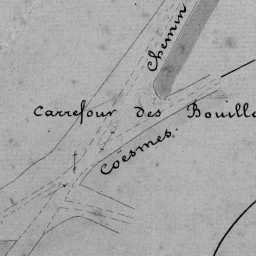 Chemin
Carrefour des Bouill
Coësmes.